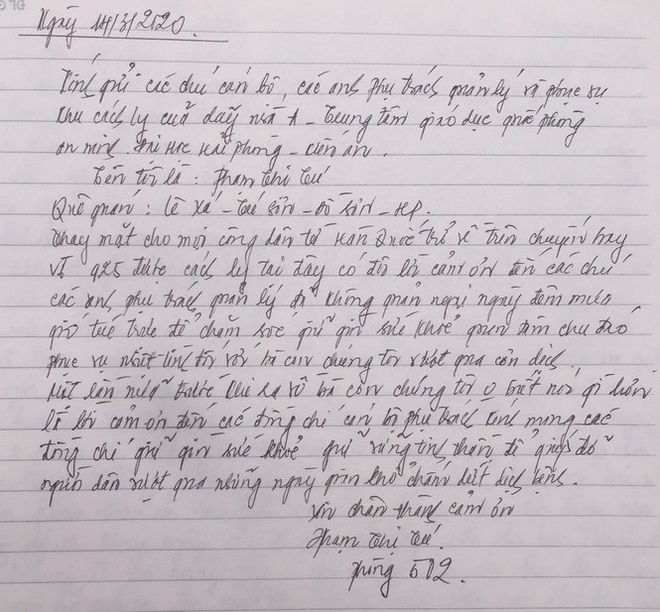 Ngày 14/3/2020.
Kính gửi các chú cán bộ, các anh phụ trách quản lý và phục vụ
khu cách ly của dãy nhà A - Trung tâm giáo dục quốc phòng
an ninh. Đại học Hải phòng - kiến an.
Tên tôi là : Phạm Thị Tú
Quê quán : Lê Xá - Tú Sơn - Đồ Sơn - HP.
Thay mặt cho mọi công dân từ Hàn Quốc trở về trên chuyến bay
VJ 925 được cách ly tại đây có đôi lời cảm ơn đến các chú
các anh phụ trách quản lý đã không quản ngại ngày đêm mưa
gió túc trực để chăm sóc giữ gìn sức khoẻ quan tâm chu đáo
phục vụ nhiệt tình đối với bà con chúng tôi vượt qua cơn dịch.
Một lần nữa trước khi ra về bà con chúng tôi o biết nói gì hơn
là lời cảm ơn đến các đồng chí cán bộ phụ trách kính mong các
đồng chí giữ gìn sức khoẻ giữ vững tinh thần để giúp đỡ
người dân vượt qua những ngày gian khổ chấm dứt dịch bệnh.
Xin chân thành cảm ơn
Phạm Thị Tú.
Phòng 502.